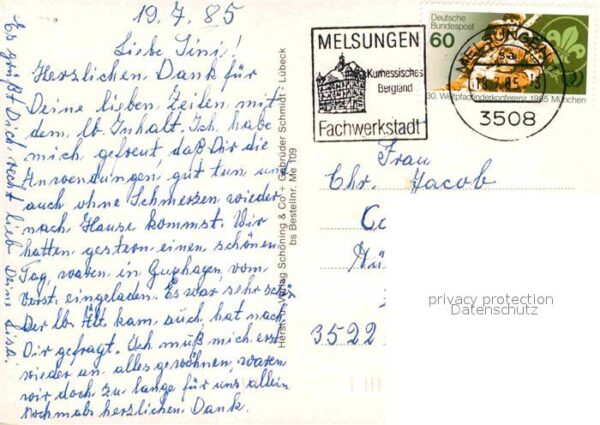 19.7.85
Liebe Tini!
Herzlichen Dank für
Deine lieben Zeilen mit
dem lb. Inhalt. Ich habe
mich gefreut, daß Dir die
Anwendungen gut tun und
auch ohne Schmerzen wieder
nach Hause kommst. Wir
hatten gestern einen schönen
Tag, waren in Guxhagen, vom
Vorst. eingeladen. Es war sehr schön
Der lb. Ält. kam auch, hat nach
Dir gefragt. Ich muß mich erst
wieder an alles gewöhnen, waren
wir doch zu lange für uns allein
Nochmals herzlichen Dank.
Es grüßt Dich recht lieb Deine Lisa.
Herst. u. Verlag Schöning & Co + Gebrüder Schmidt - Lübeck
bs Bestellnr. Me 109
MELSUNGEN
Kurhessisches
Bergland
Fachwerkstadt
Deutsche
Bundespost
60
30. Weltpfadfinderkonferenz 1985 München
MELSUNGEN
3508
Frau
Chr. Jacob
3522
privacy protection
Datenschutz